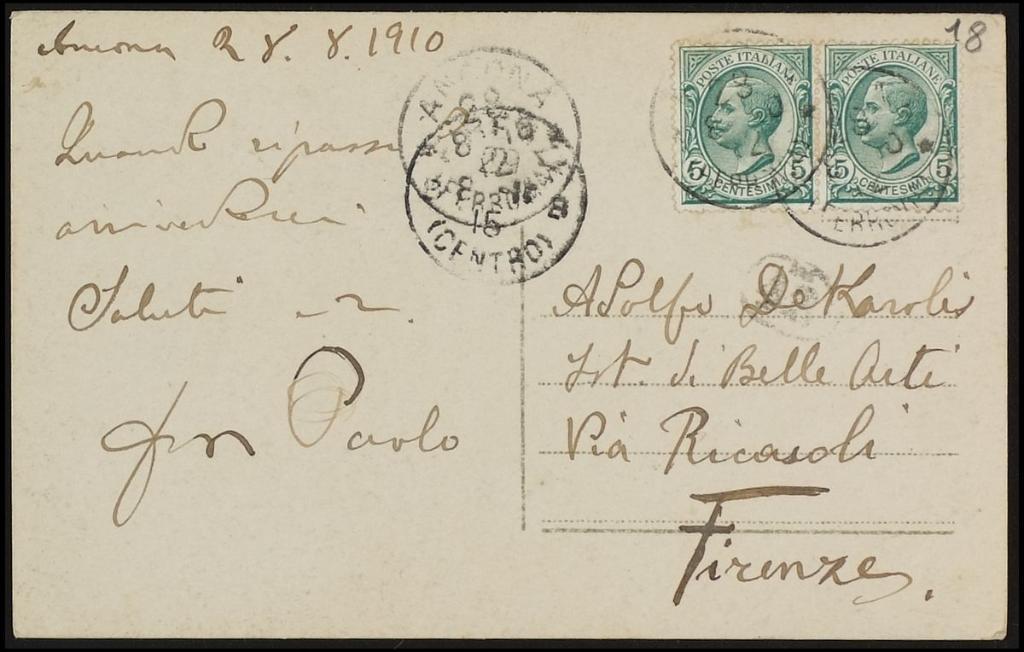 Ancona 28.8.1910
18
Quando ripassi
arrivederci
Saluti
Paolo
ANCONA
FERROVIA
16
(CENTRO)
POSTE ITALIANE
5 CENTESIMI 5
POSTE ITALIANE
5 CENTESIMI 5
FERROVIA
Adolfo De Karolis
Ist. di Belle Arti
Via Ricasoli
Firenze.